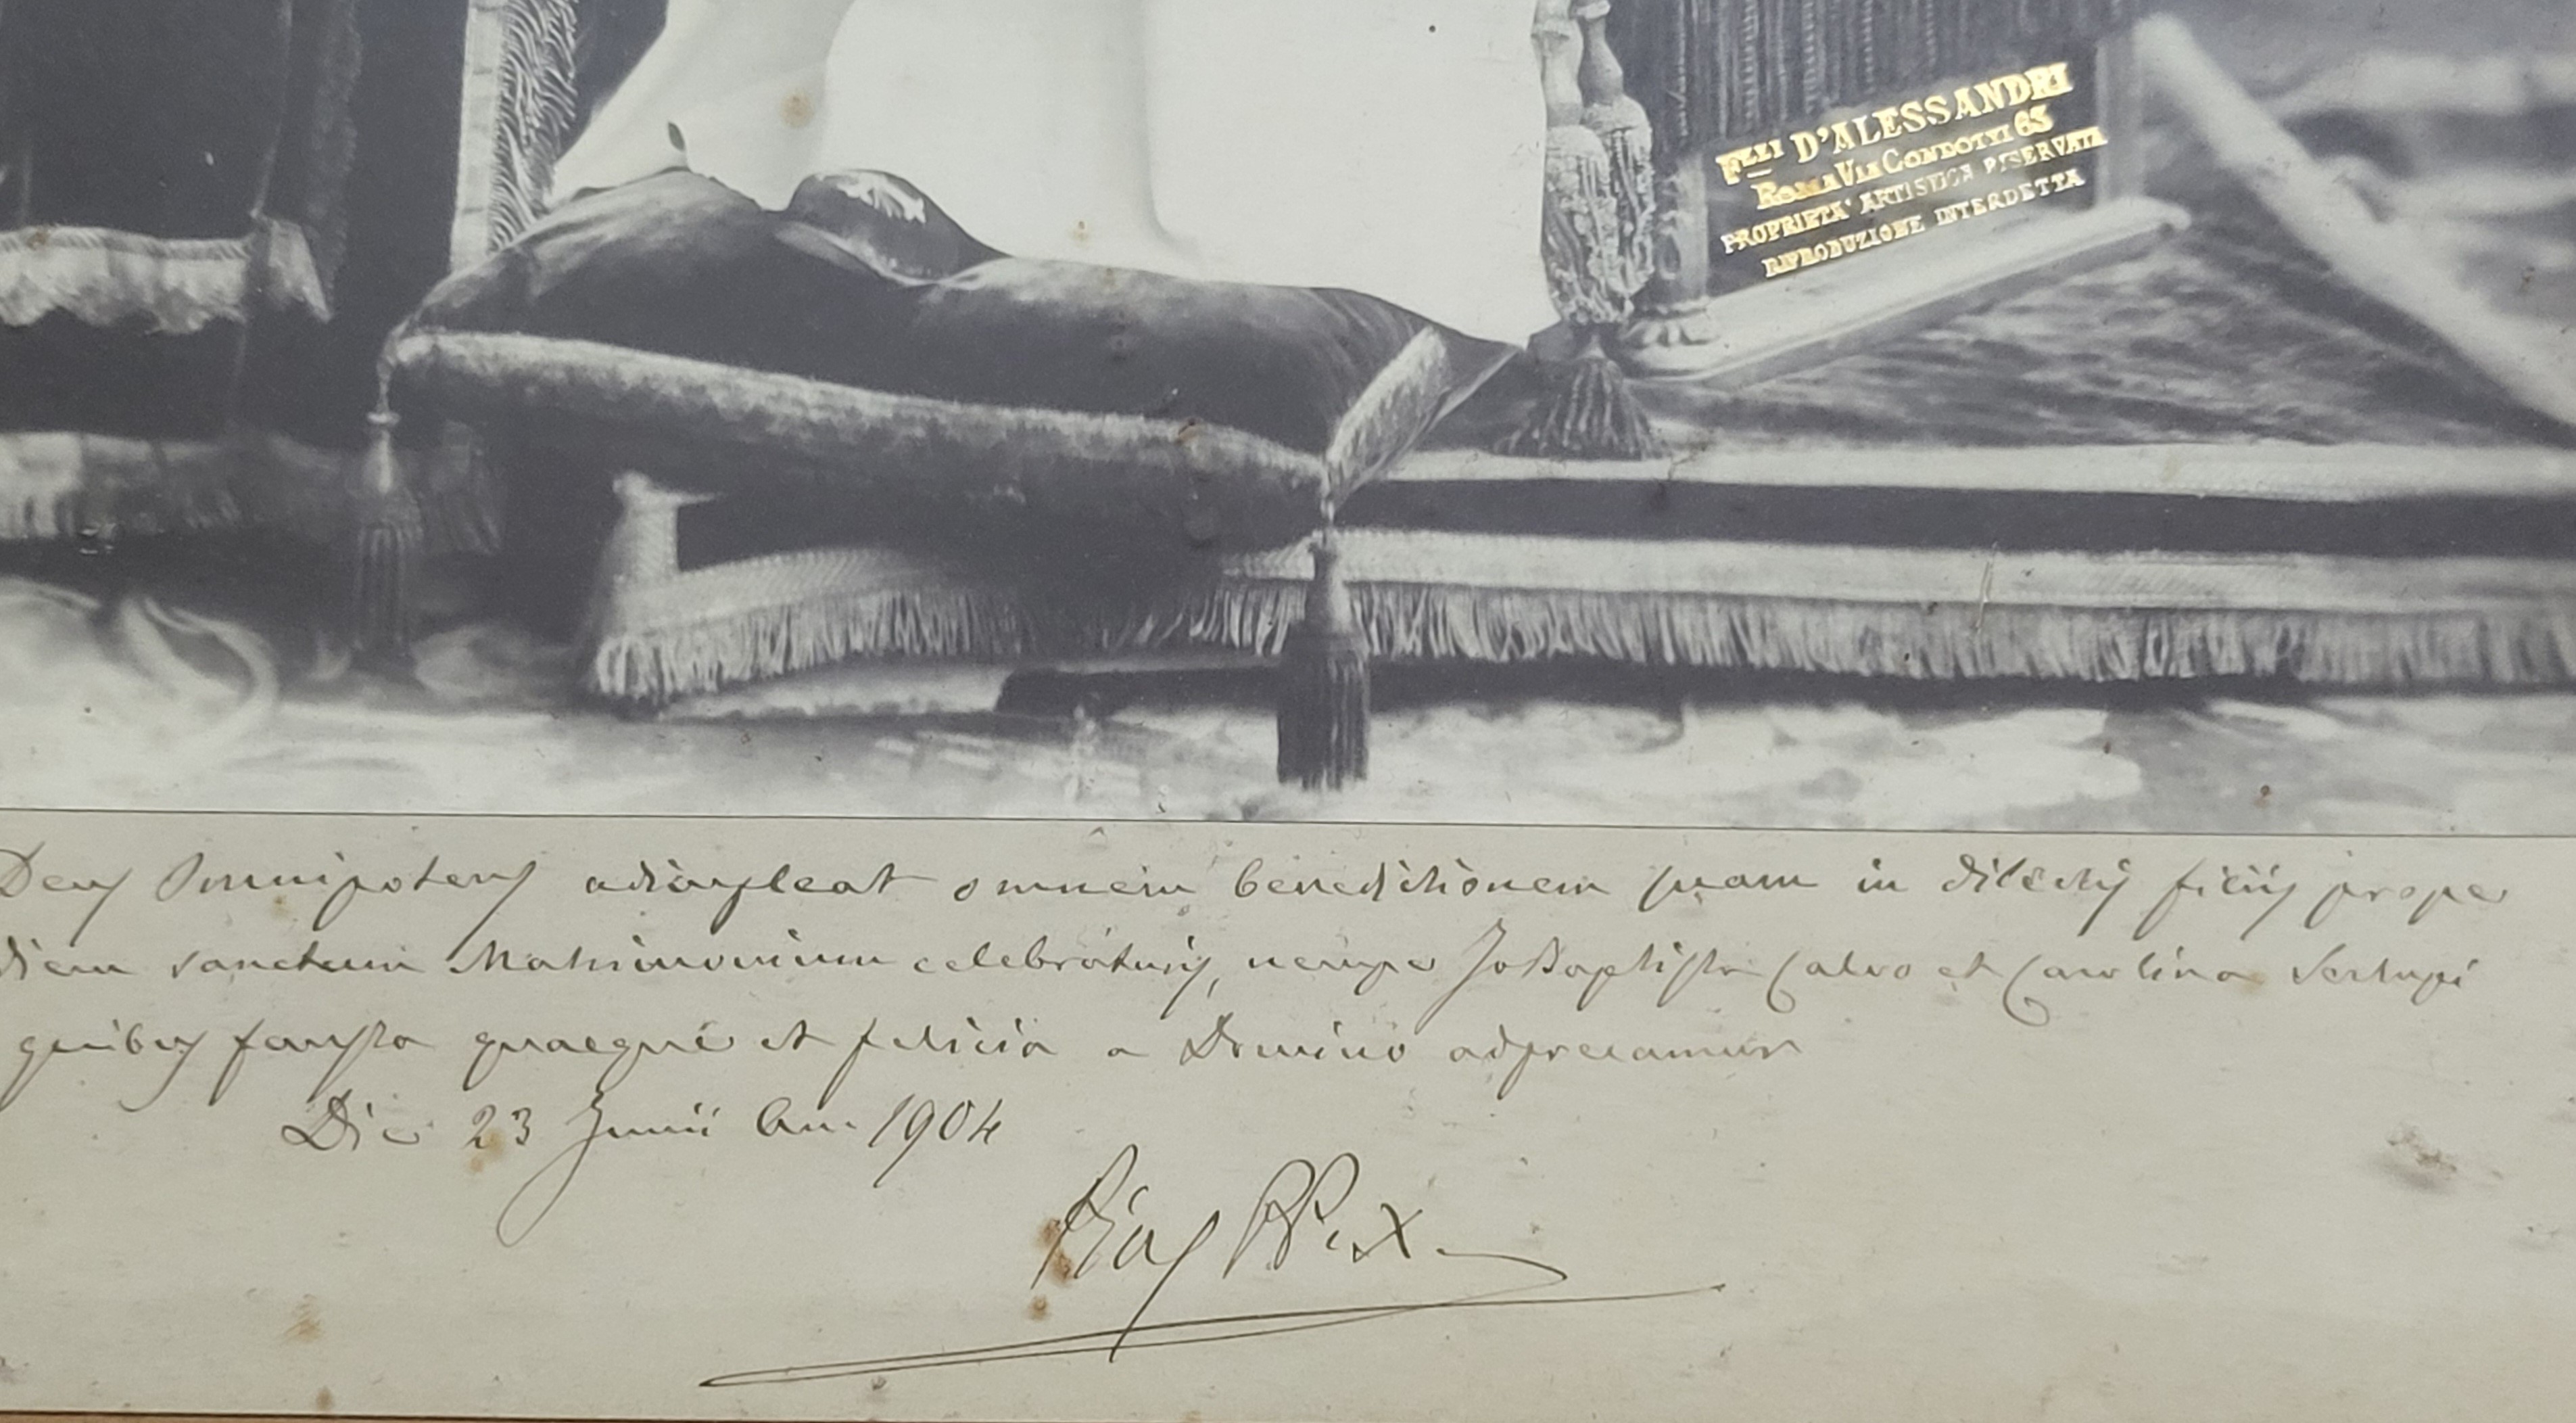 Flli D'ALESSANDRI
ROMA VIA CONDOTTI 63
PROPRIETA' ARTISTICA RISERVATA
RIPRODUZIONE INTERDETTA
Deus Omnipotens adimpleat omnem benedictionem suam in dilectis filiis prope
diem sanctum Matrimonium celebraturis, nempe Jo Baptista Calvo et Carolina Serlupi
quibus fausta quaeque et felicia a Domino adprecamur
Die 23 Junii An. 1904
Pius PP. X.